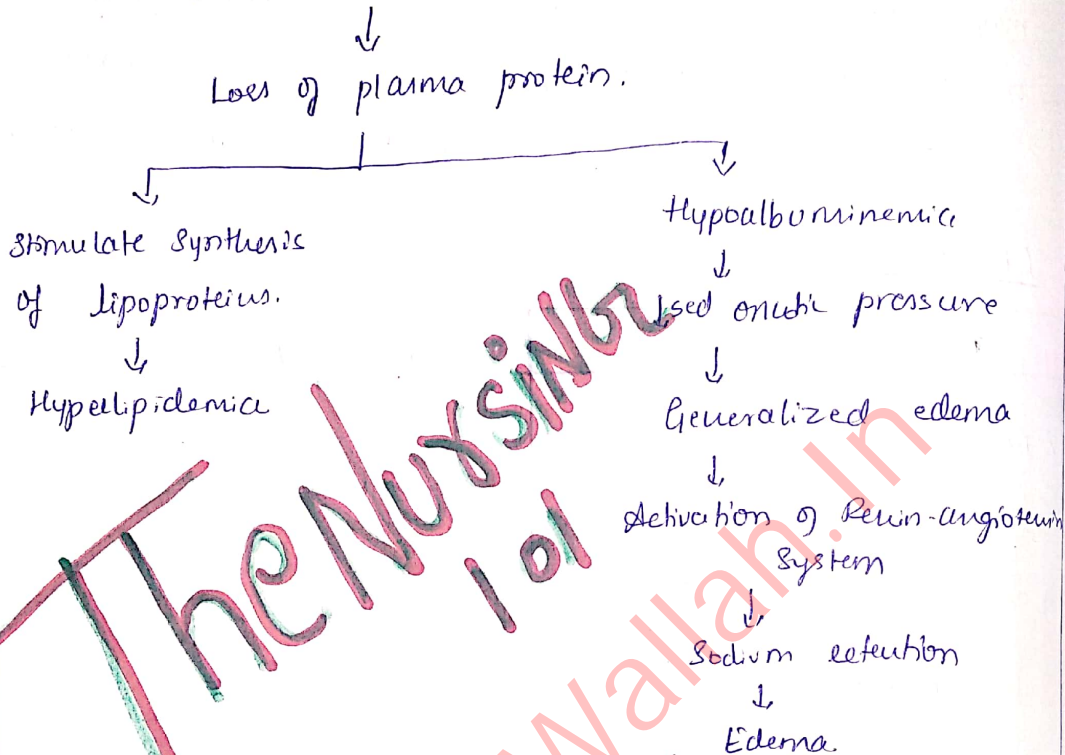 ↓
Loss of plasma protein.
↓ ↓
Stimulate Synthesis
of lipoproteins.
↓
Hyperlipidemia
Hypoalbuminemia
↓
↓sed oncotic pressure
↓
Generalized edema
↓
Activation of Renin-angiotensin
System
↓
Sodium retention
↓
Edema
TheNursing
101
Wallah.In